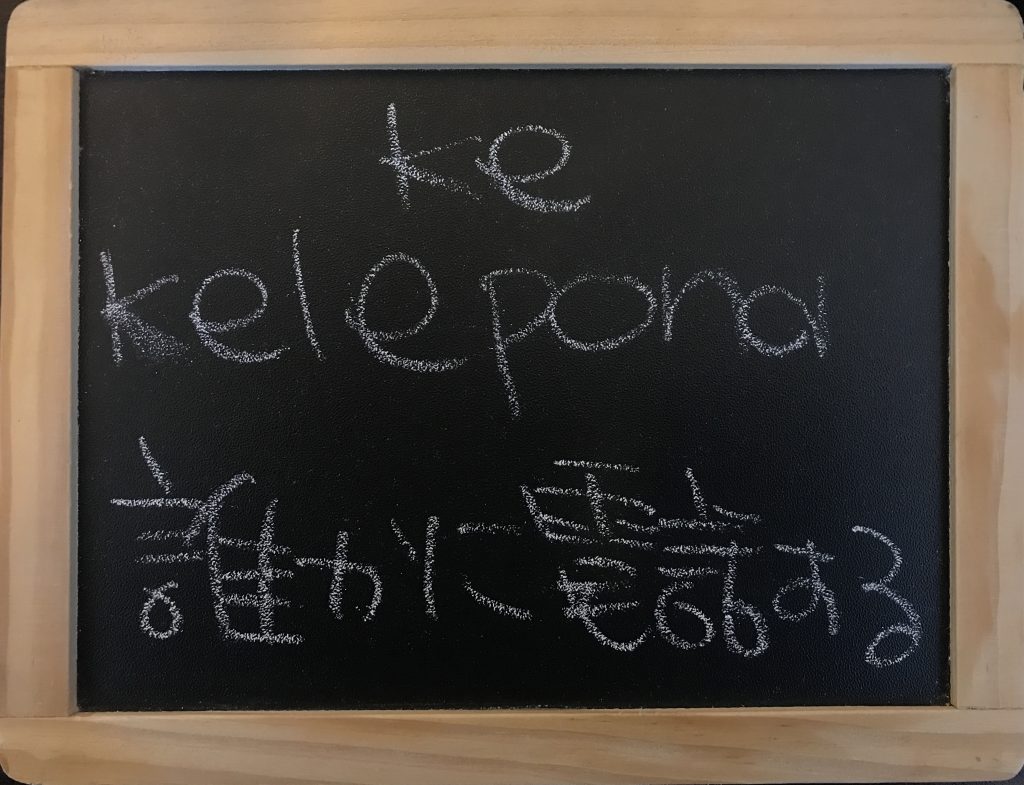 ke
kelepona
誰かに電話する